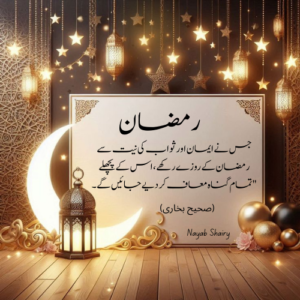 رمضان
جس نے ایمان اور ثواب کی نیت سے
رمضان کے روزے رکھے، اس کے پچھلے
تمام گناہ معاف کر دیے جائیں گے۔"
(صحیح بخاری)
Nayab Shairy